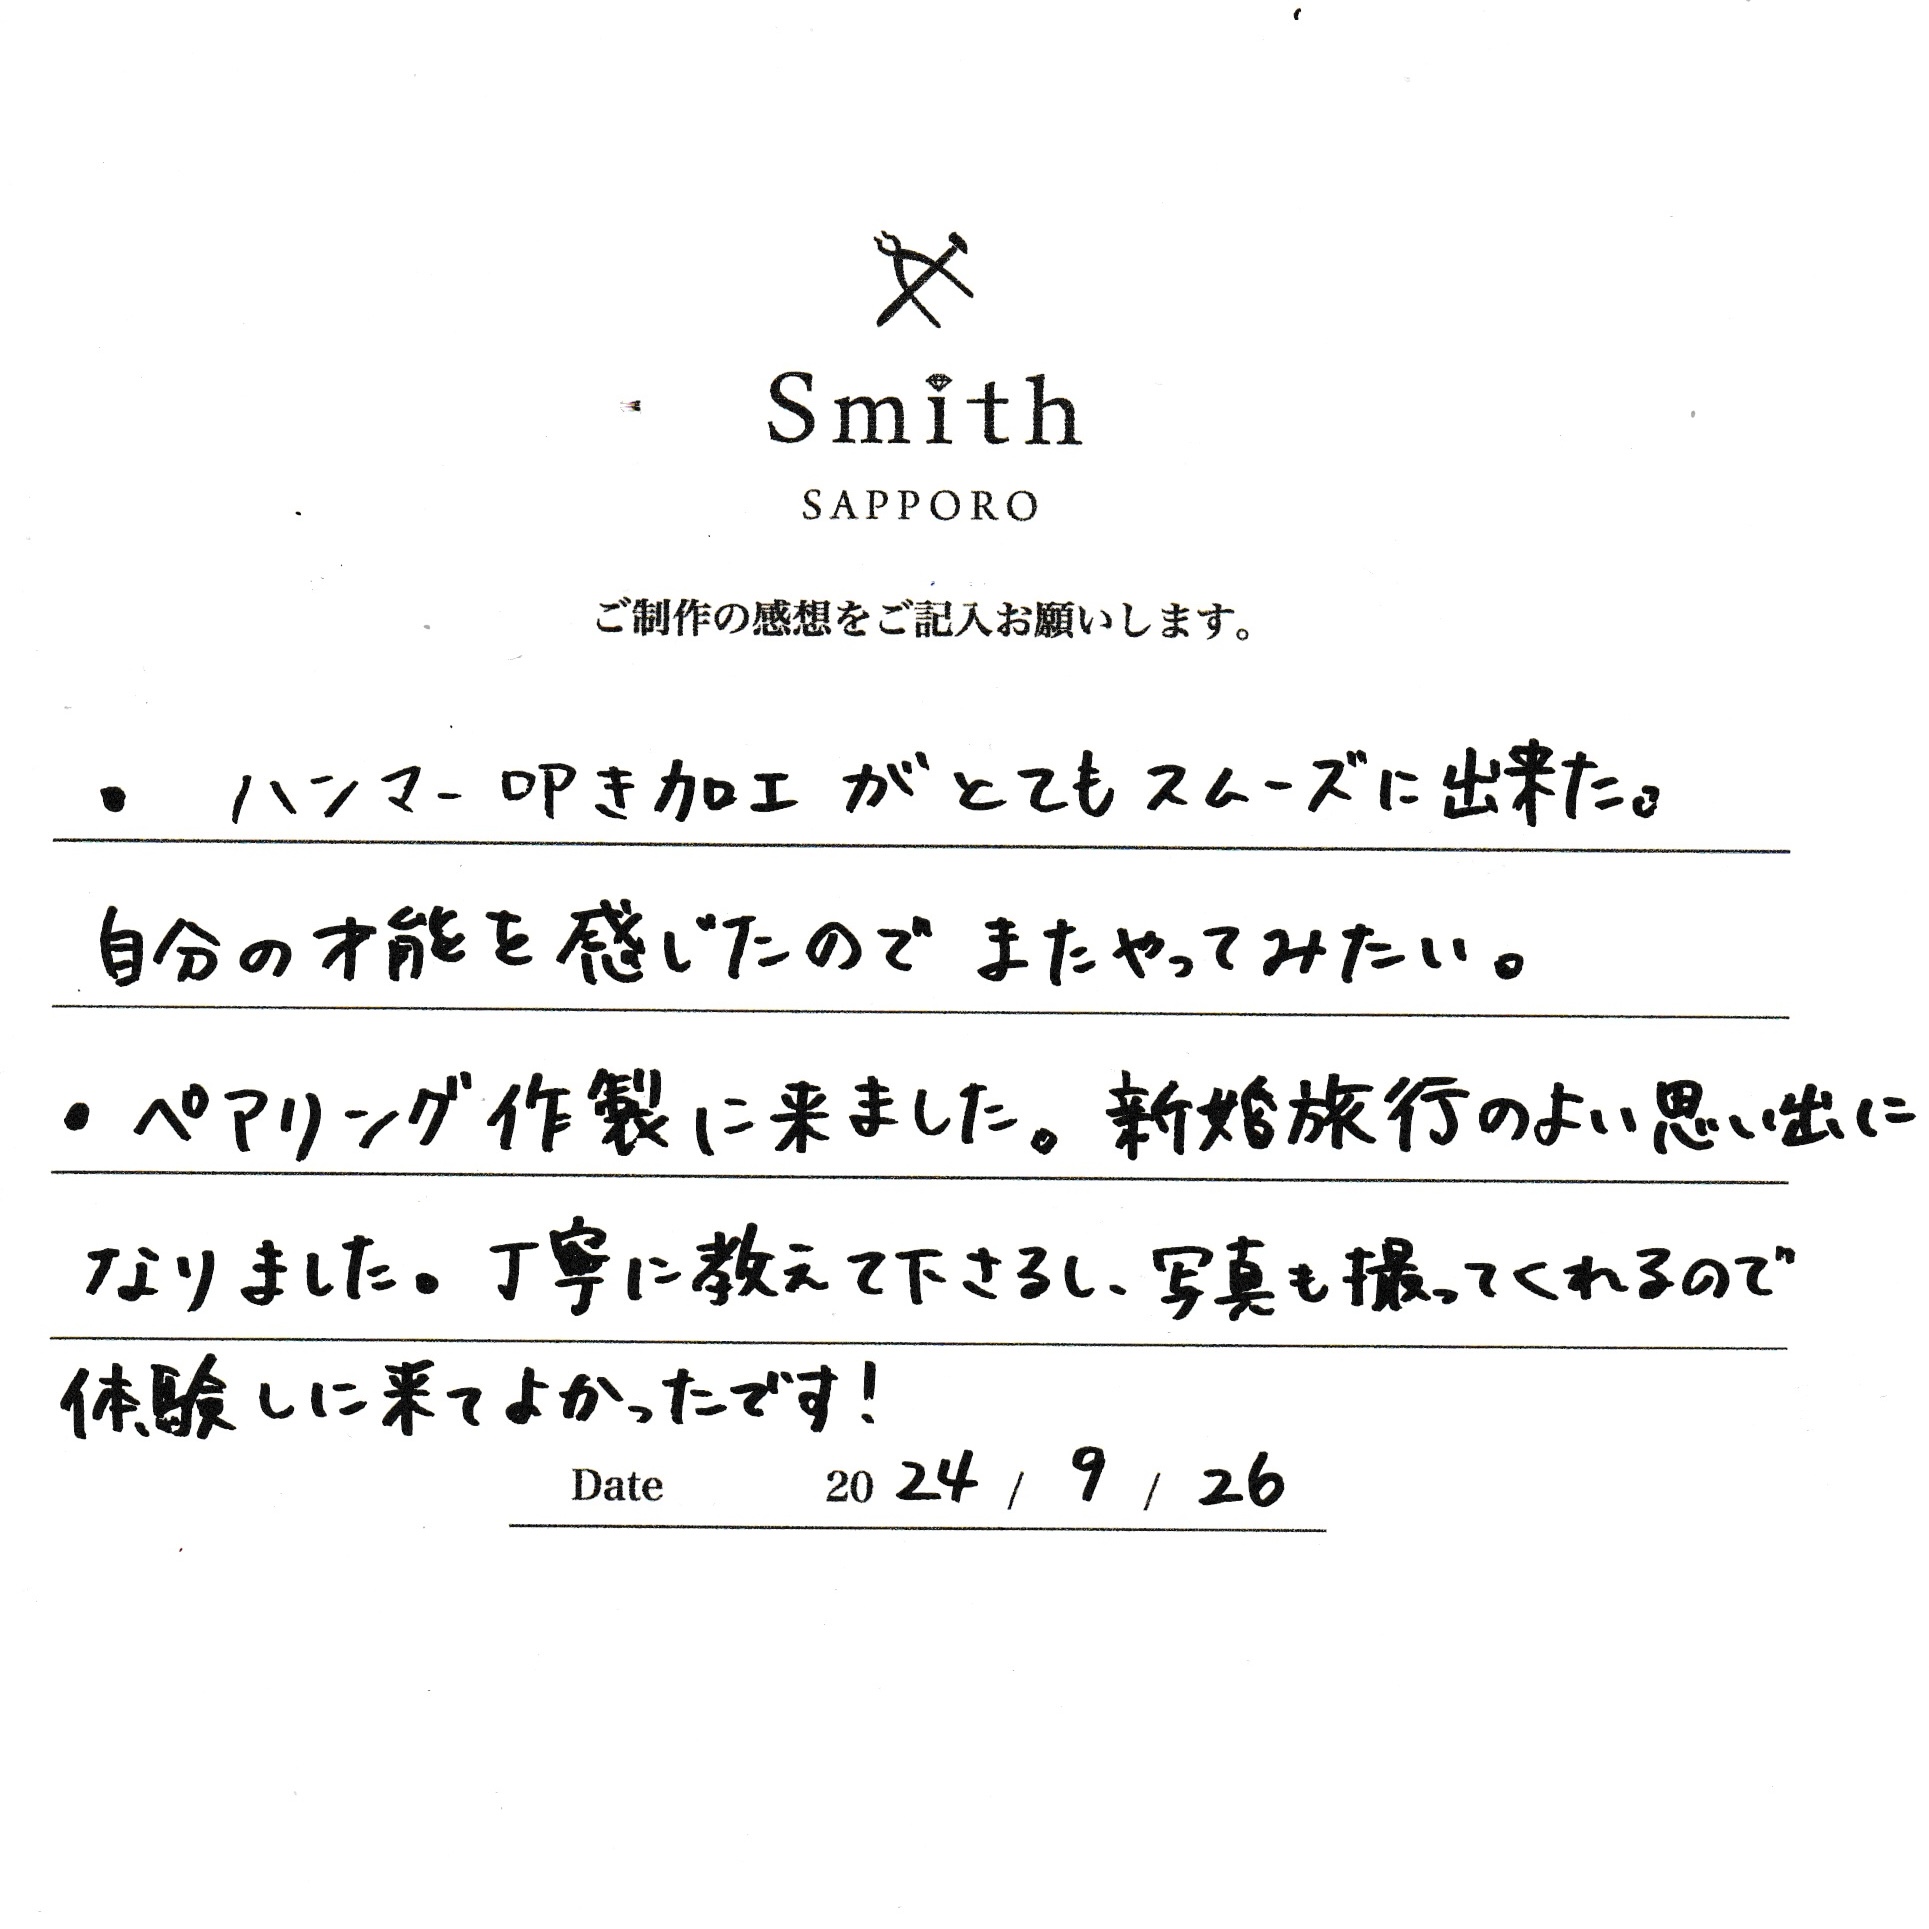 Smith
SAPPORO
ご制作の感想をご記入お願いします。
• ハンマー叩き加工がとてもスムーズに出来た。
自分の才能を感じたので またやってみたい。
• ペアリング作製に来ました。新婚旅行のよい思い出に
なりました。丁寧に教えて下さるし、写真も撮ってくれるので
体験しに来てよかったです!
Date 2024 / 9 / 26